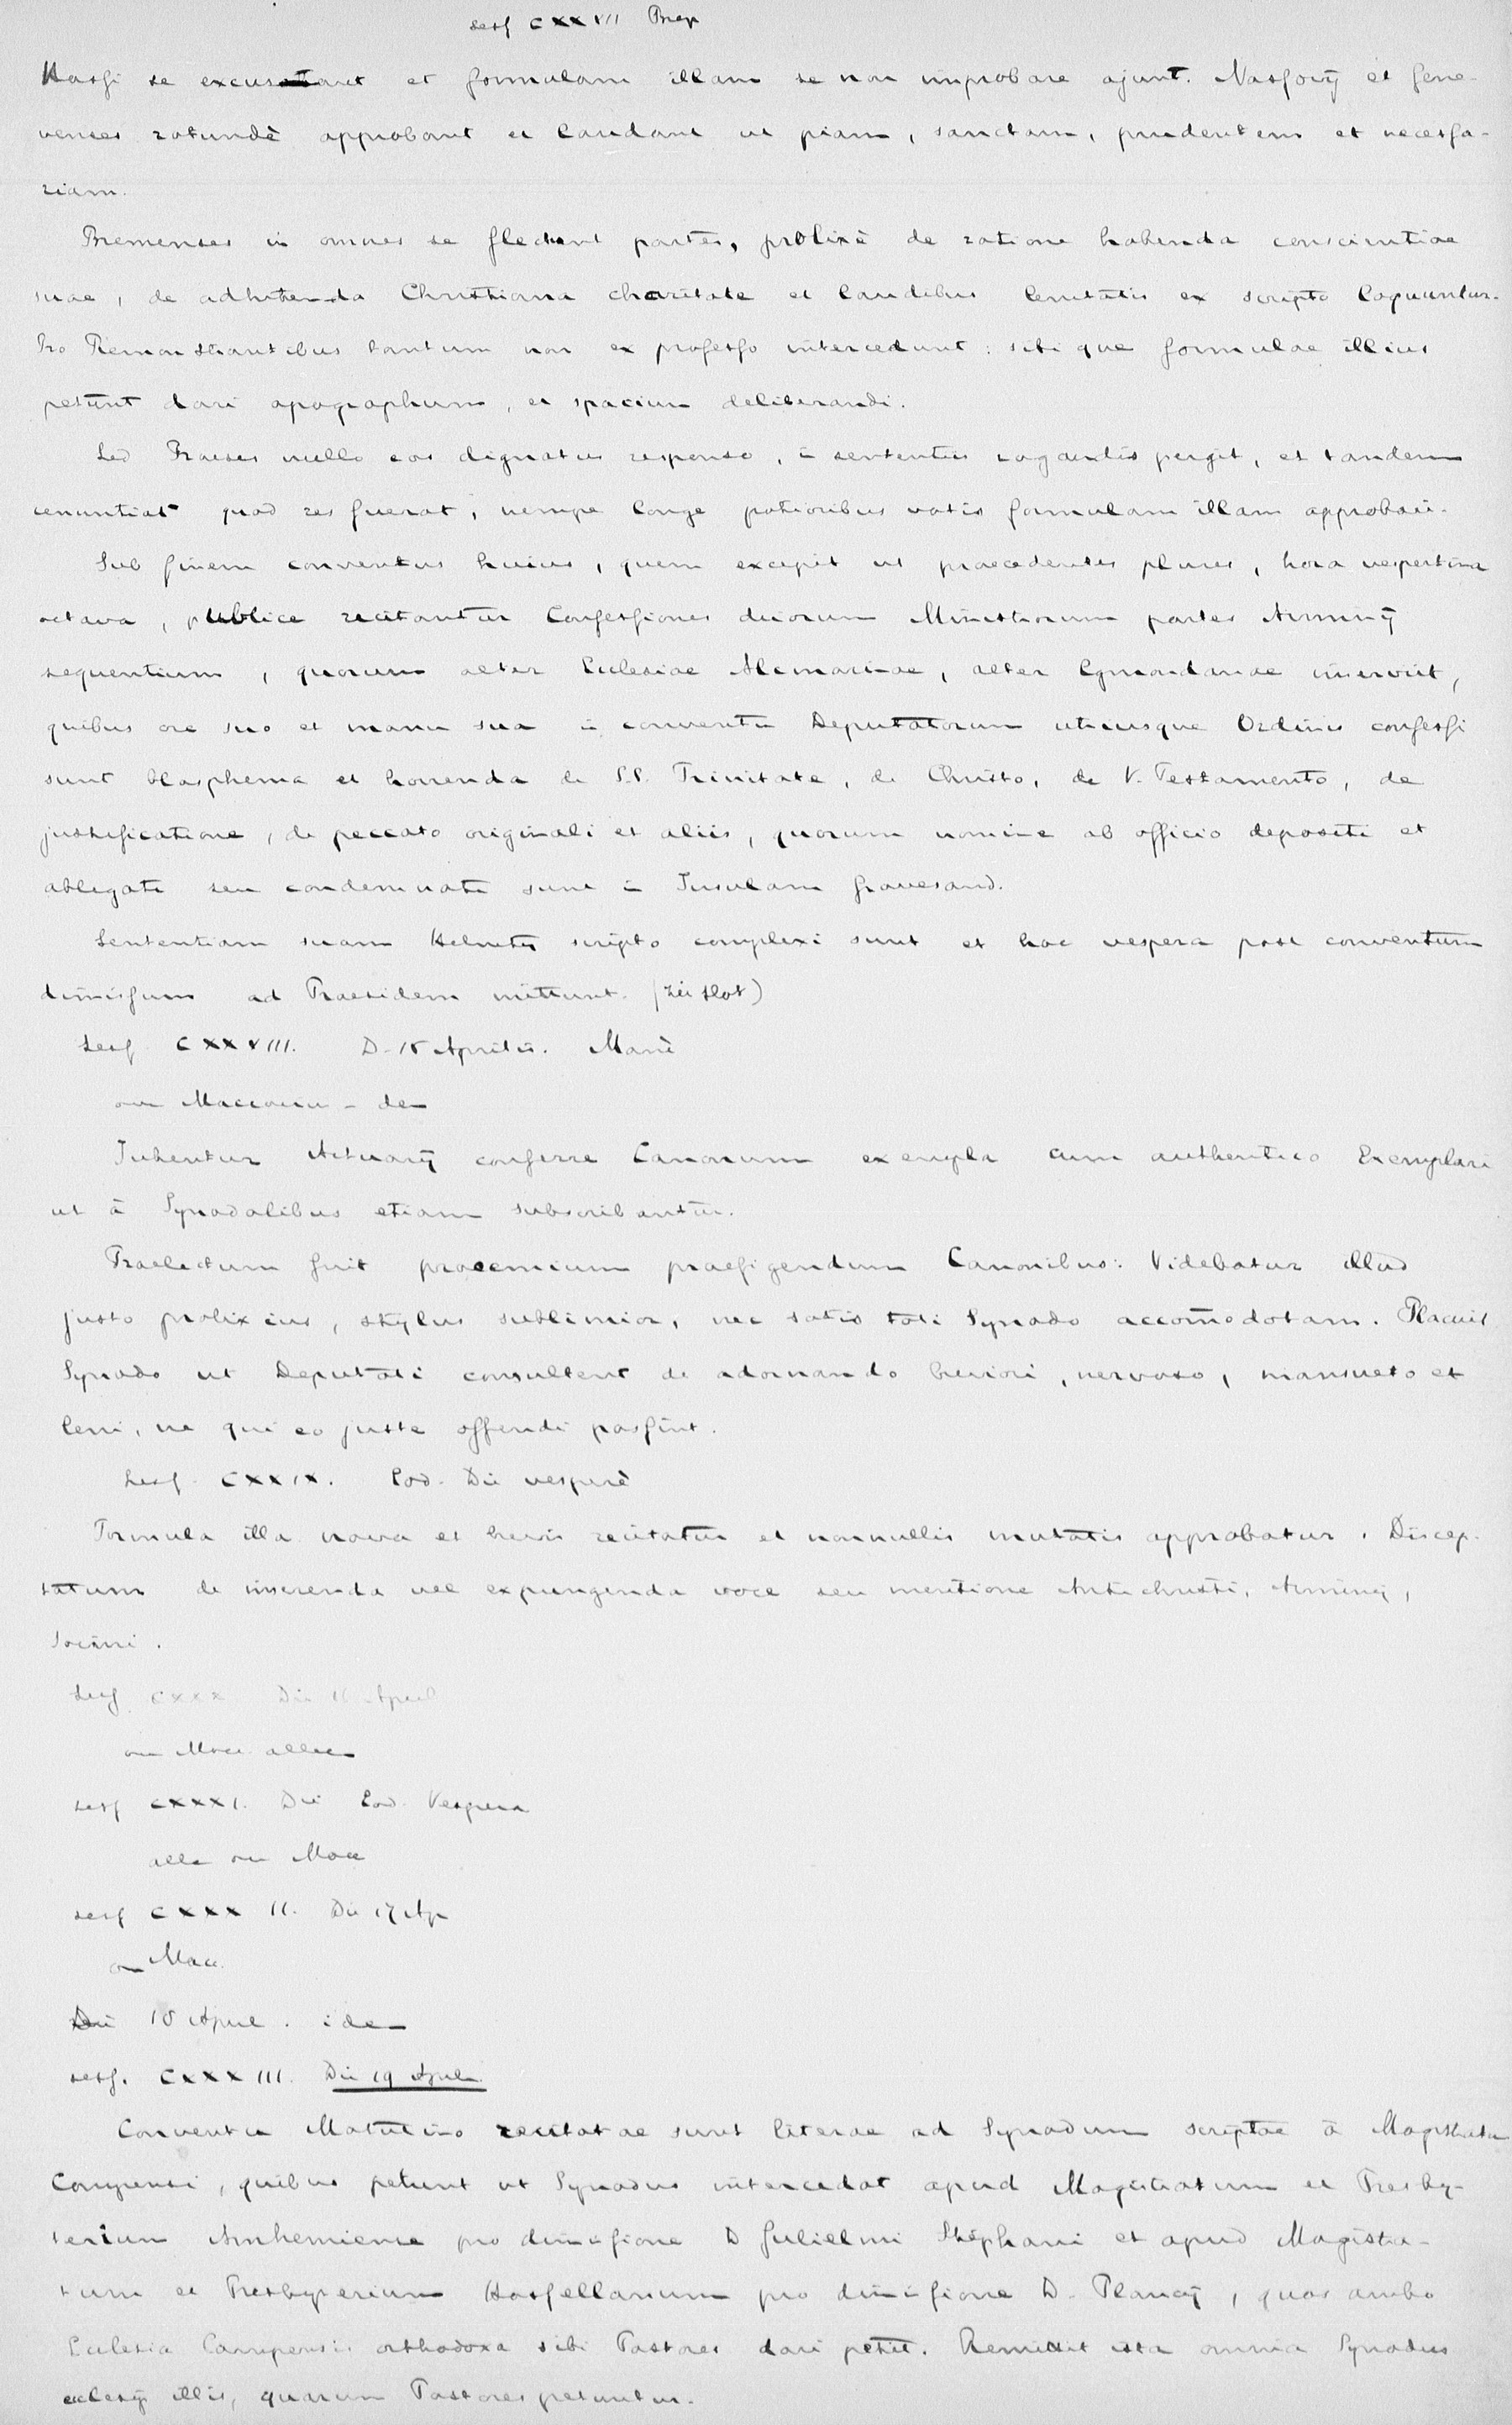 sess CXXVII Brep
Hassi se excusant et formulam illam se non improbare ajunt. Nassovij et Gene-
venses rotundè approbant et laudant ut piam, sanctam, prudentem et necessa-
riam.
Bremenses in omnes se flectunt partes, prolixè de ratione habenda conscientiae
suae, de adhibenda Christiana charitate et laudibus lenitatis ex scripto loquuntur.
Pro Remonstrantibus tantum non ex professo intercedunt: sibi que formulae illius
petunt dari apographum, et spacium deliberandi.
Sed Praeses nullo eos dignatus responso, in sententiis rogandis pergit, et tandem
renuntiat quod res fuerat, nempe longe potioribus votis formulam illam approbari.
Sub finem conventus huius, quem excepit ut praecedentes plures, hora vespertina
octava, publice recitantur Confessiones duorum Ministrorum partes Arminij
sequentium, quorum alter Ecclesiae Alcmarinae, alter Egmondanae inserviit,
quibus ore suo et manu sua in conventu Deputatorum utriusque Ordinis confessi
sunt blasphema et horrenda de S.S. Trinitate, de Christo, de V. Testamento, de
justificatione, de peccato originali et aliis, quorum nomine ab officio depositi et
ablegati seu condemnati sunt in Insulam Gravesand.
Sententiam suam Helvetij scripto complexi sunt et hac vespera post conventum
dimissum ad Praesidem mittunt. (zie slot)
Sess CXXVIII. D. 15 Aprilis. Manè
Jubentur Actuarij conferre Canonum exempla cum authentico Exemplari
ut à Synodalibus etiam subscribantur.
Praelectum fuit prooemium praefigendum Canonibus: Videbatur illud
justo prolixius, stylus sublimior, nec satis toti Synodo accomodatam. Placuit
Synodo ut Deputati consultent de adornando breviori, nervoso, mansueto et
leni, ne qui eo juste offendi possint.
Sess CXXIX. Eod. Die vesperè
Formula illa nova et brevis recitatur et nonnullis mutatis approbatur. Discep-
tatum de inserenda vel expungenda voce seu mentione Antichristi, Arminij,
Socini.
Sess CXXX Die 16 April
om Macc. alleen
sess CXXXI. Die Eod. Vespera
alle om Macc
sess CXXXII. Die 17 Ap
om Macc.
Die 18 April. idem
sess. CXXXIII. Die 19 April.
Conventu Matutino recitatae sunt literae ad Synodum scriptae à Magistratu
Campensi, quibus petunt ut Synodus intercedat apud Magistratum et Presby-
terium Arnhemiense pro dimissione D Gulielmi Stephani et apud Magistra-
tum et Presbyterium Hassellanum pro dimissione D. Plancij, quos ambo
Ecclesia Campensis orthodoxa sibi Pastores dari petit. Remittit ista omnia Synodus
ecclesijs illis, quarum Pastores petuntur.